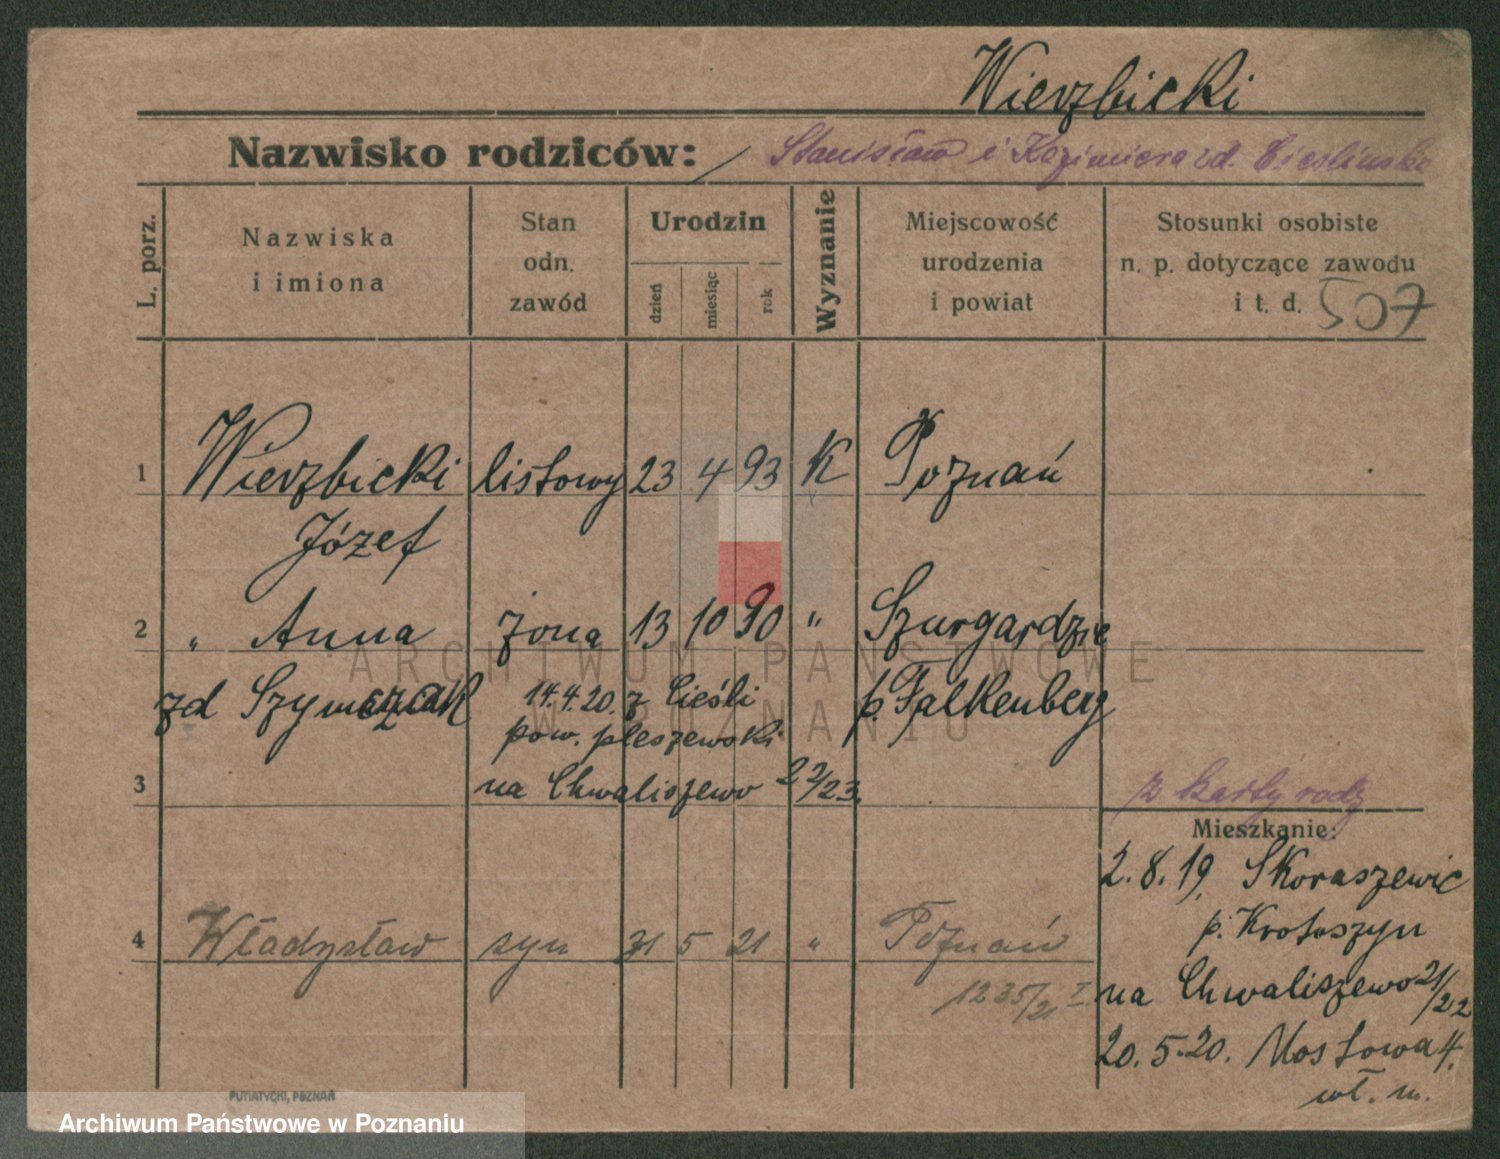 Wierzbicki
Nazwisko rodziców: Stanisław i Kazimiera zd. Cieślińska
L. porz.
Nazwiska
i imiona
Stan
odn.
zawód
Urodzin
dzień
miesiąc
rok
Wyznanie
Miejscowość
urodzenia
i powiat
Stosunki osobiste
n. p. dotyczące zawodu
i t. d. 507
1 Wierzbicki listowy 23 4 93 K Poznań
Józef
2 " Anna żona 13 10 90 " Szurgardzie
zd Szymczak 14.4.20. z Cieśli p. Falkenberg
pow. pleszewski
3 na Chwaliszewo 22/23.
z karty rodz
Mieszkanie:
2.8.19. Skoraszewic
p. Krotoszyn
4 Władysław syn 31 5 21 " Poznań
1235/21 I
na Chwaliszewo 21/22
20.5.20. Mostowa 4.
wł. m.
PUTIATYCKI, POZNAŃ
ARCHIWUM PAŃSTWOWE
W POZNANIU
Archiwum Państwowe w Poznaniu